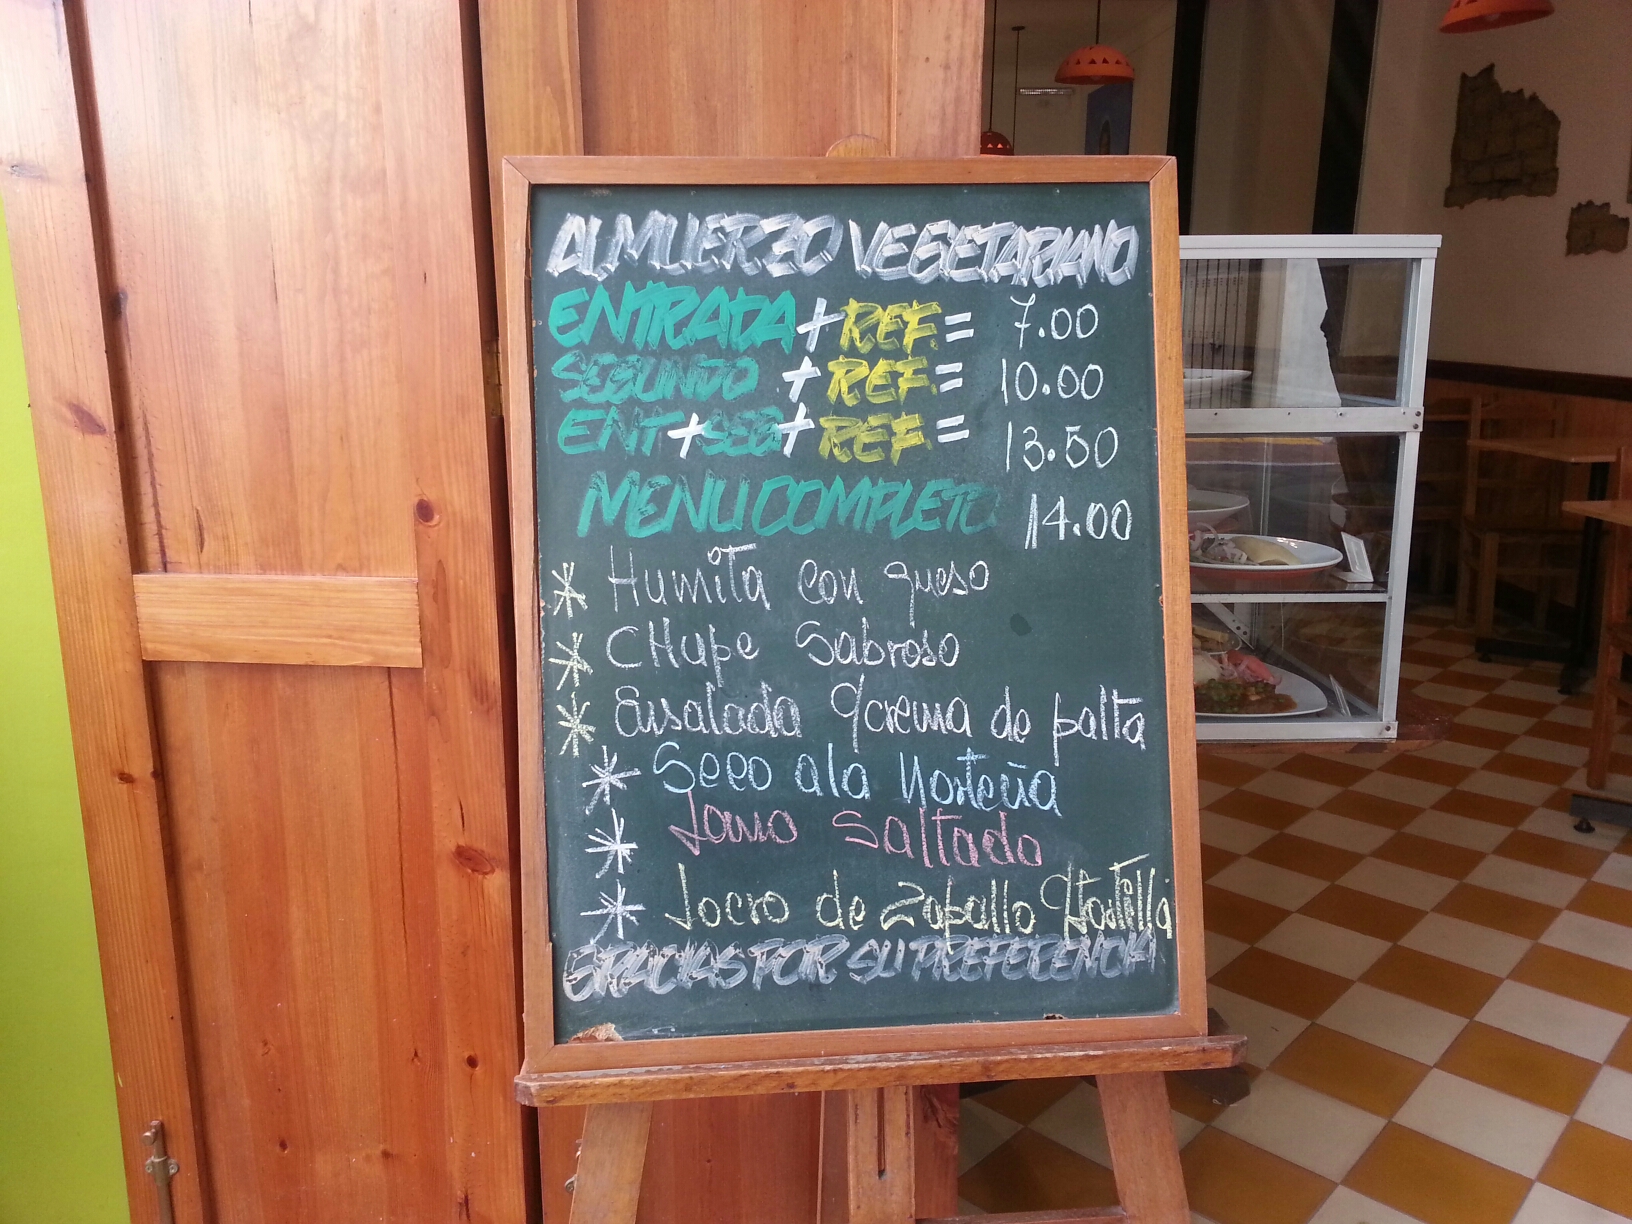 ALMUERZO VEGETARIANO
ENTRADA + REF. = 7.00
SEGUNDO + REF. = 10.00
ENT + SEG + REF. = 13.50
MENU COMPLETO 14.00
* Humita con queso
* CHupe Sabroso
* Ensalada Ycrema de palta
* Seco ala Norteña
* Lomo Saltado
* Locro de Zapallo Ytortilla
GRACIAS POR SU PREFERENCIA